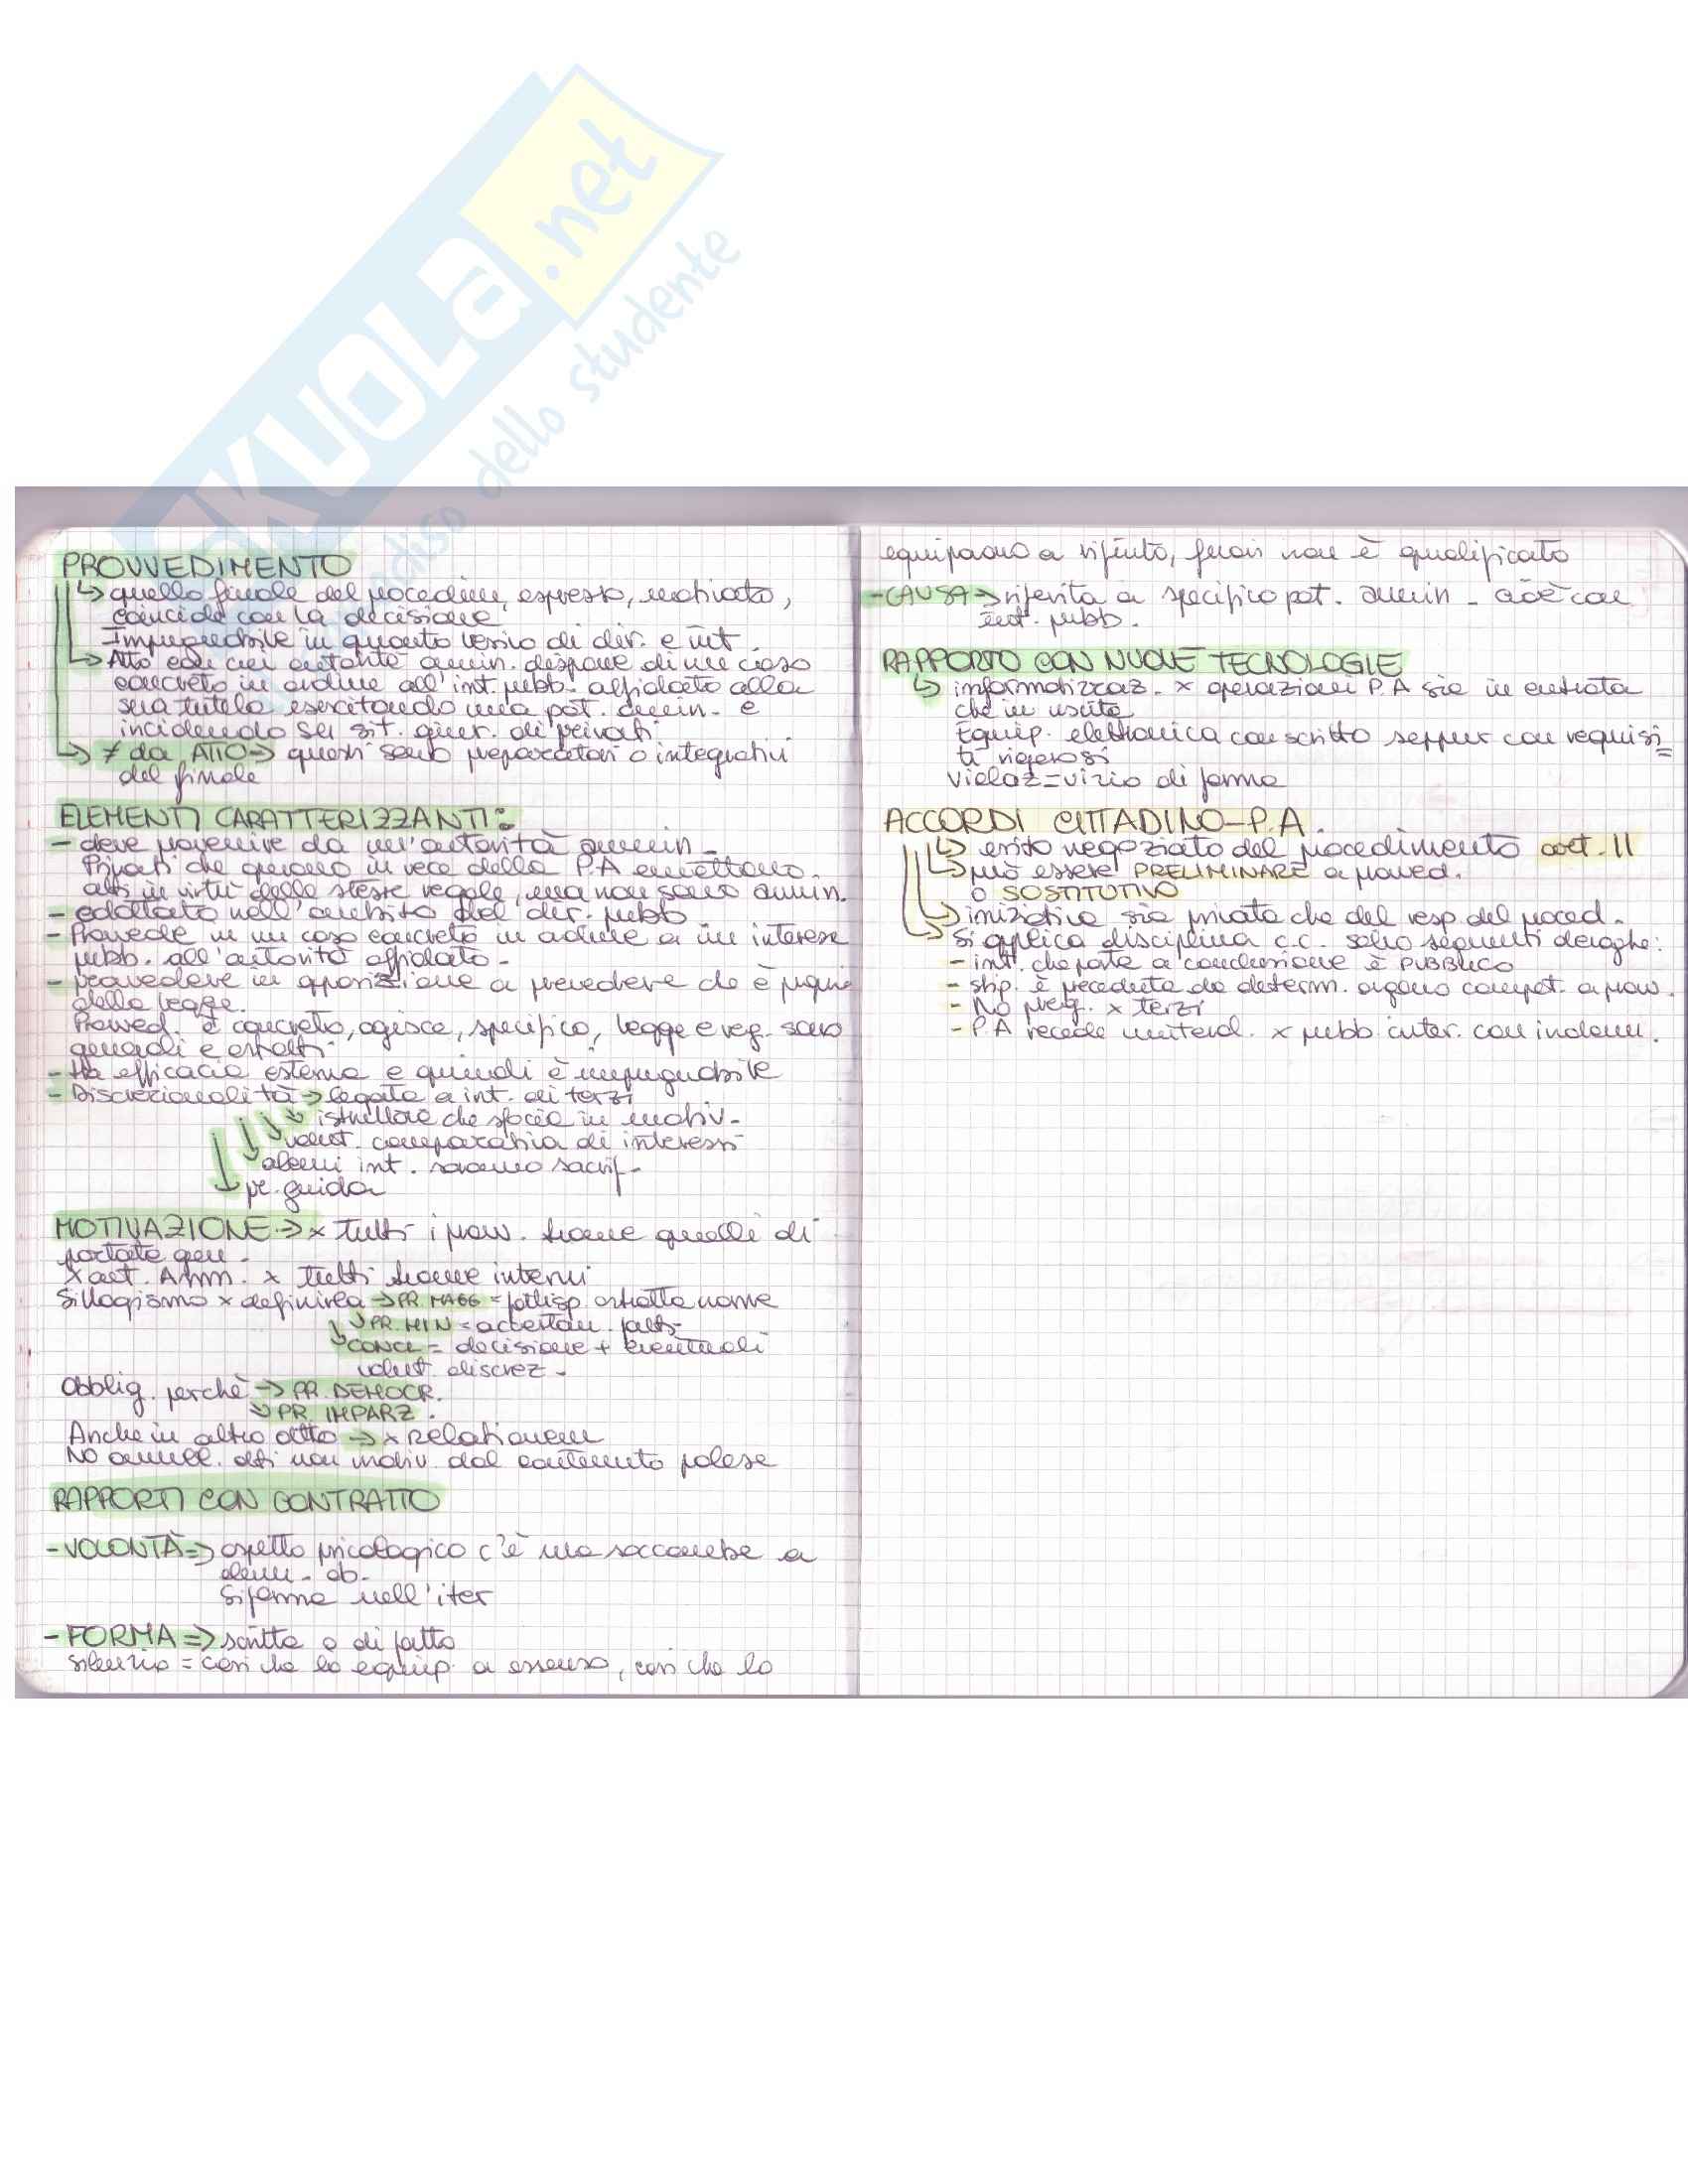 SKUOLA.net
paradiso dello studente
PROVVEDIMENTO
↳ quello finale del procedim, espresso, motivato,
coincide con la decisione
Impugnabile in quanto lesivo di dir. e int.
↳ Atto con cui autorità ammin. dispone di un caso
concreto in ordine all'int. pubb. affidato alla
sua tutela esercitando una pot. ammin. e
incidendo su sit. giur. di privati
↳ ≠ da ATTO → questi sono preparatori o integrativi
del finale
ELEMENTI CARATTERIZZANTI:
- deve provenire da un'autorità ammin.
Privati che operano in vece della P.A emettono
atti in virtù delle stesse regole, ma non sono ammin.
- adottato nell'ambito del dir. pubb.
- Provvede in un caso concreto in ordine a un interesse
pubb. all'autorità affidato -
- provvedere in opposizione a prevedere che è
della legge.
Provved. è concreto, agisce, specifico, legge e reg. sono
generali e astratti
- Ha efficacia esterna e quindi è impugnabile
- Discrezionalità → legata a int. di terzi
↘ istruttoria che sfocia in motiv.
↘ valut. comparativa di interessi
↓ alcuni int. saranno sacrif.
↓ pr. guida
MOTIVAZIONE → x tutti i provv. tranne quelli di
portata gen.
X att. Amm. x tutti tranne interni
Sillogismo x definirla → PR. MAGG = fattisp. astratta norme
↘ PR. MIN = accertam. fatti
↘ CONCL = decisione + eventuali
valut. discrez.
Obblig. perchè → PR. DEMOCR.
↘ PR. IMPARZ.
Anche in altro atto → x Relationem
No annull. atti non motiv. dal contenuto palese
RAPPORTI CON CONTRATTO
- VOLONTÀ => aspetto psicologico c'è ma soccombe a
elem. ob.
Si forma nell'iter
- FORMA => scritta o di fatto
silenzio = casi che lo equip. a assenso, casi che lo
equiparano a rifiuto, fuori non è qualificato
- CAUSA → riferita a specifico pot. ammin - cioè con
int. pubb.
RAPPORTO CON NUOVE TECNOLOGIE
↳ informatizzaz. x operazioni P.A sia in entrata
che in uscita
Equip. elettronica con scritto seppur con requisi=
ti rigorosi
Violaz = vizio di forma
ACCORDI CITTADINO-P.A.
↳ esito negoziato del procedimento art. 11
↳ può essere PRELIMINARE a provved.
o SOSTITUTIVO
↳ iniziativa sia privata che del resp. del proced.
↳ Si applica disciplina c.c. salvo seguenti deroghe:
- int. che porta a conclusione è PUBBLICO
- stip. è preceduta da determ. organo compet. a provv.
- No preg. x terzi
- P.A recede unilateral. x pubb inter. con indenn.